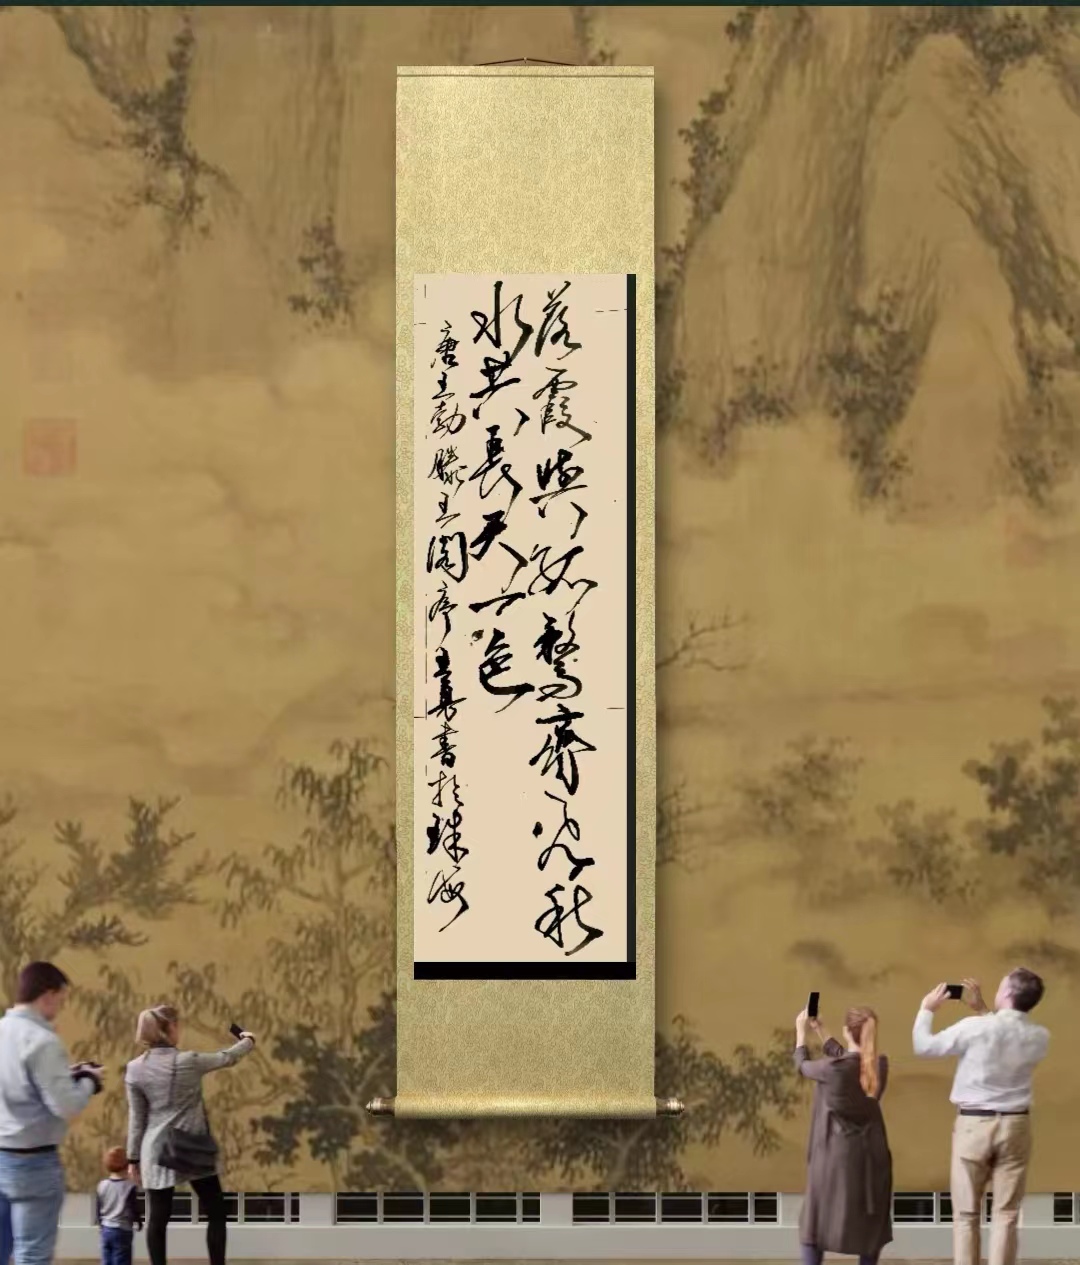 落霞與孤鶩齊飛秋
水共長天一色
唐王勃滕王閣序王真書於珠海